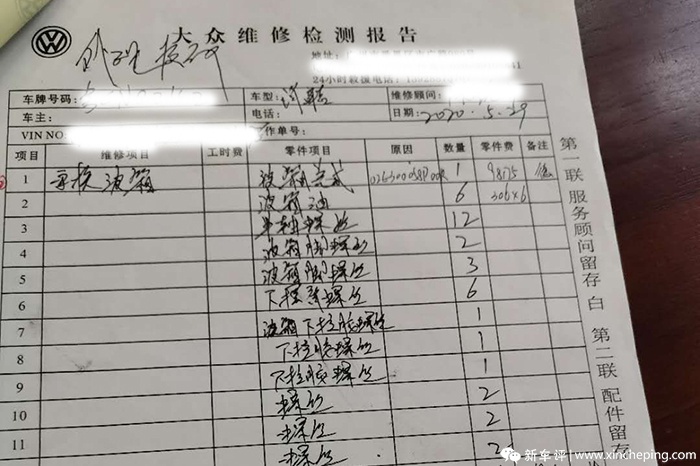 大众维修检测报告
地址:
24小时救援电话:
车牌号码: 车型: 维修顾问:
车主: 电话: 日期: 2020.5.29
VIN NO: 作单号:
项目 维修项目 工时费 零件项目 原因 数量 零件费 备注
1 更换波箱 波箱总成 1 9875
2 波箱油 6 306×6
3 半轴螺丝 12
4 波箱脚螺丝 2
5 波箱脚螺丝 3
6 螺丝 6
7 波箱下拉胶螺丝 1
8 下拉胶螺丝 1
9 下拉胶螺丝 1
10 螺丝 2
11 螺丝 2
螺丝 2
第一联 服务顾问留存 白 第二联 配件留存
新车评 | www.xincheping.com